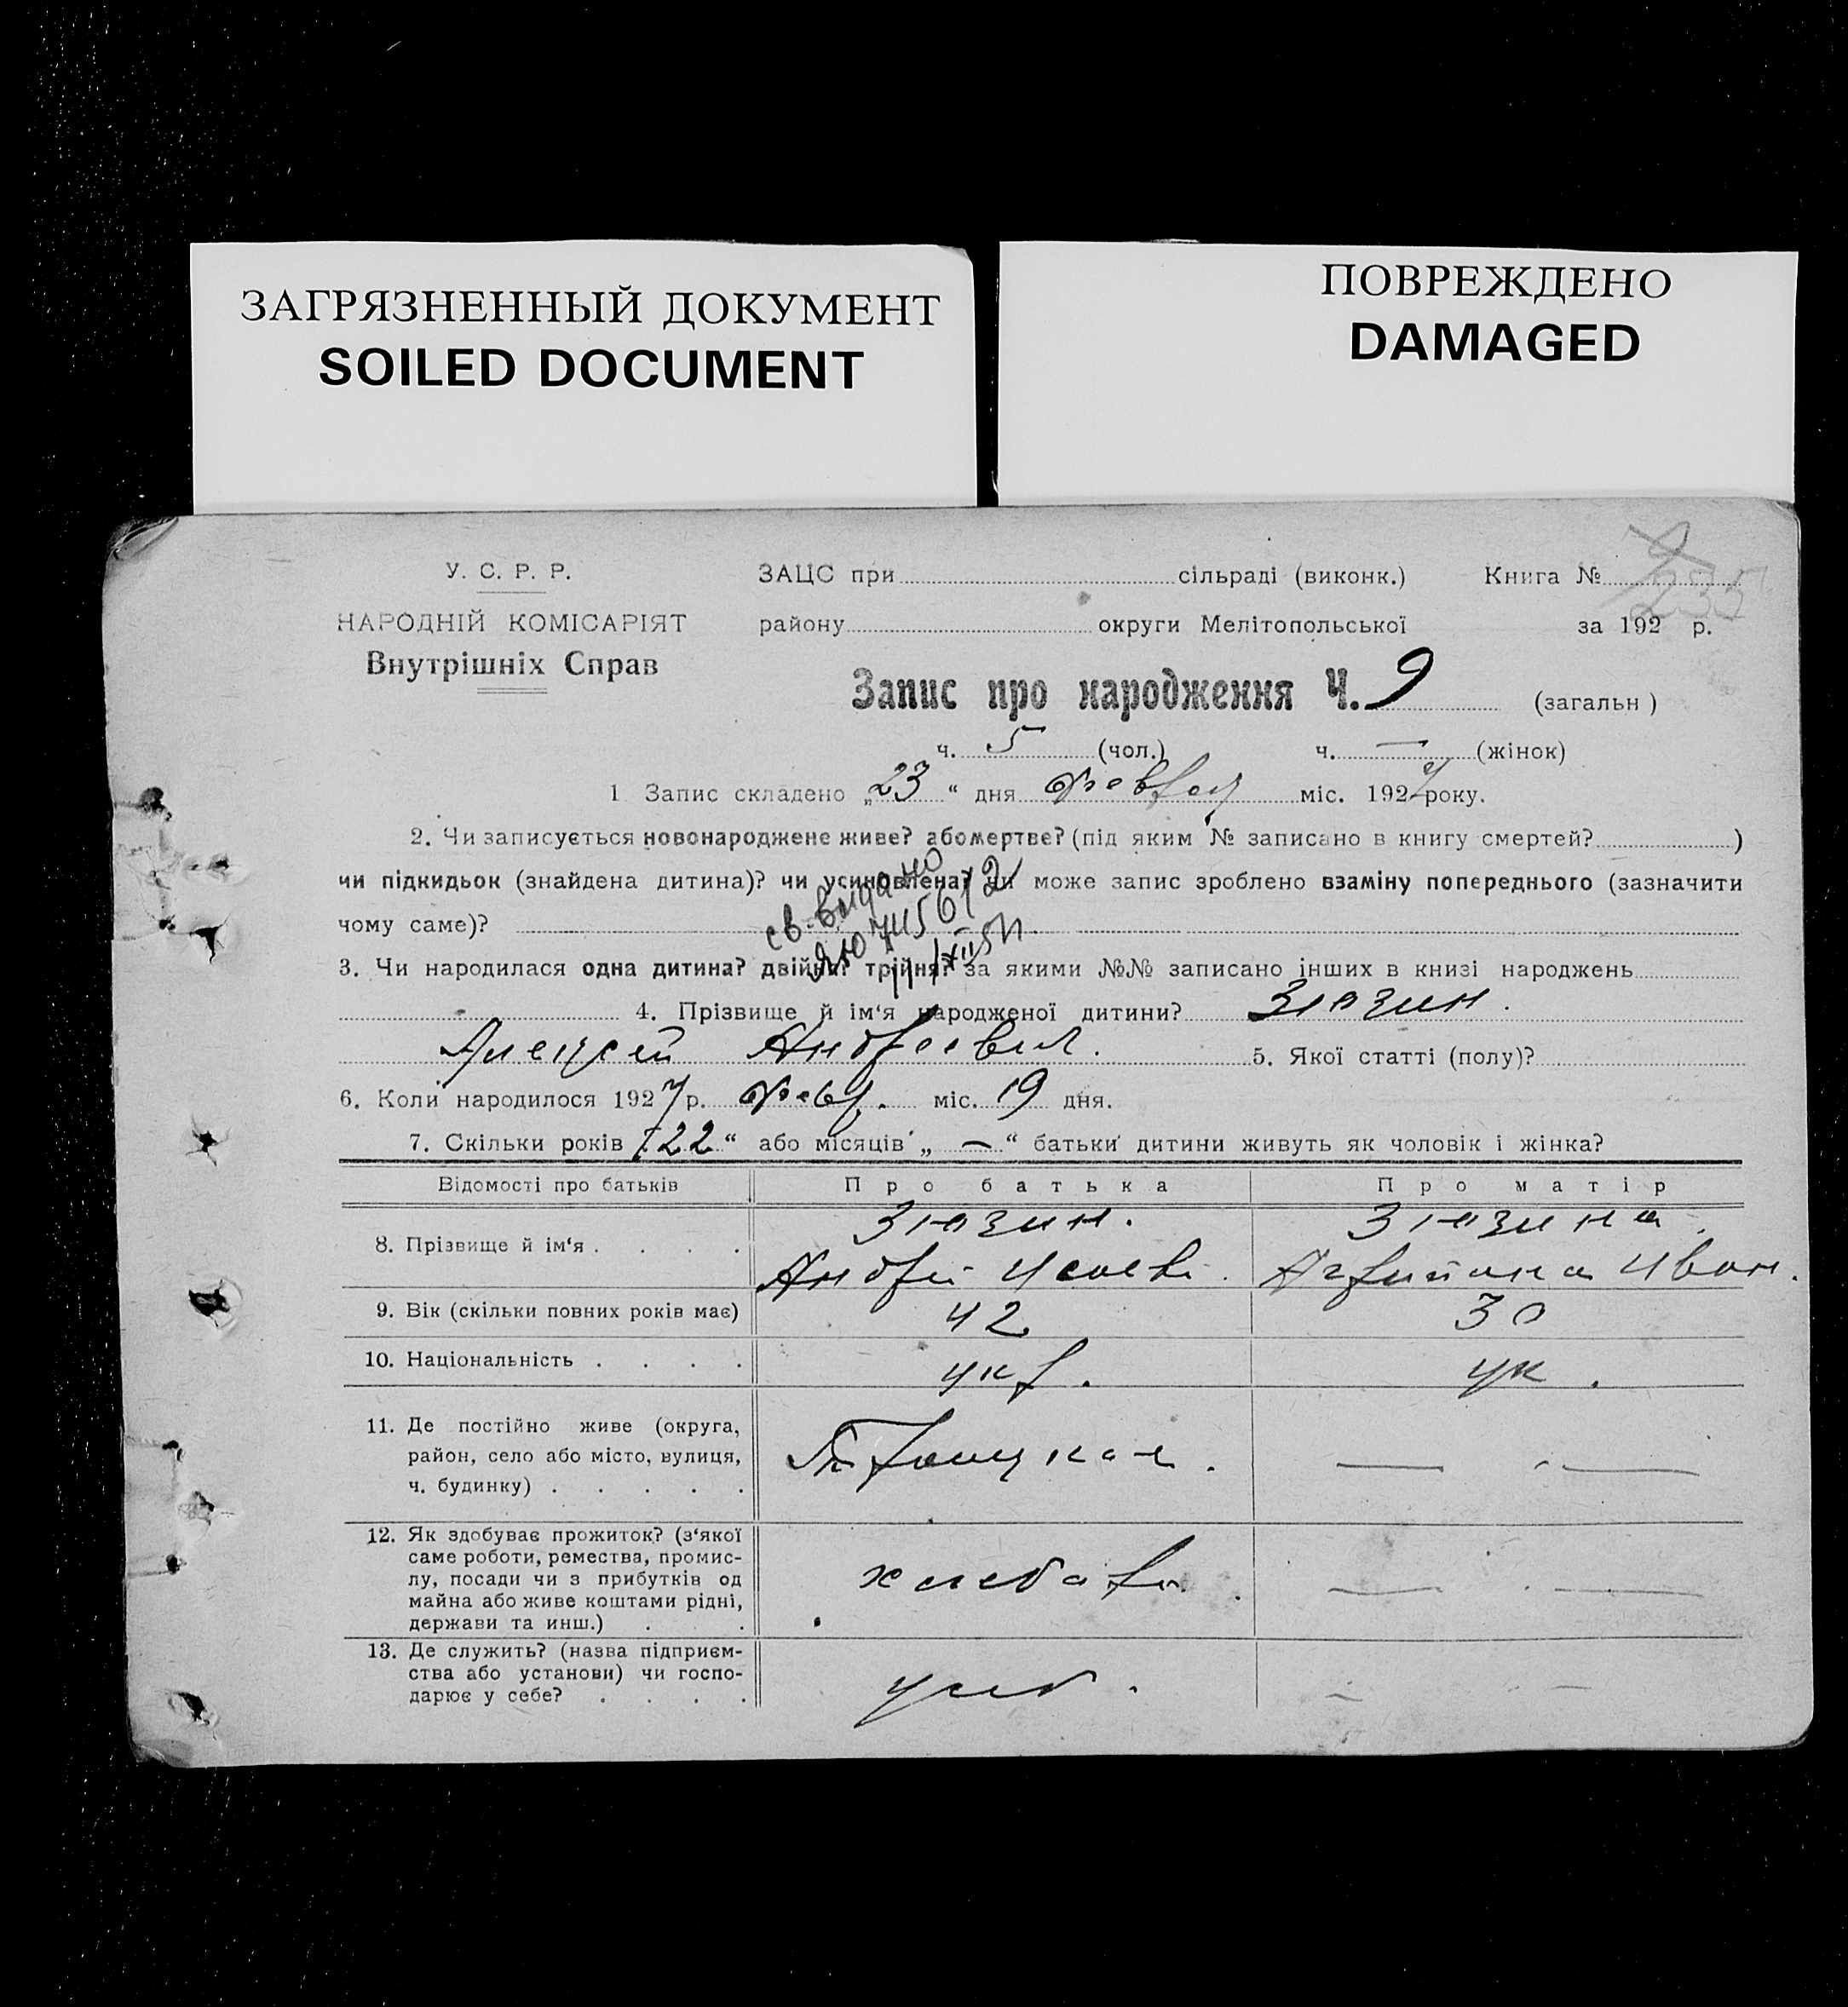 ЗАГРЯЗНЕННЫЙ ДОКУМЕНТ
SOILED DOCUMENT
ПОВРЕЖДЕНО
DAMAGED
У. С. Р. Р.
НАРОДНІЙ КОМІСАРІЯТ
Внутрішніх Справ
ЗАЦС при сільраді (виконк.) Книга № 235
району округи Мелітопольської за 192 р.
Запис про народження Ч. 9 (загальн)
ч. 5 (чол.) ч. — (жінок)
1 Запис складено „23“ дня міс. 192 року.
2. Чи записується новонароджене живе? або мертве? (під яким № записано в книгу смертей? )
чи підкидьок (знайдена дитина)? чи усиновлена? чи може запис зроблено взаміну попереднього (зазначити
чому саме)?
св. выдано
3. Чи народилася одна дитина? двійня? трійня? за якими №№ записано інших в книзі народжень
4. Прізвище й ім‘я народженої дитини? Зюзин.
Алексей Андреевич. 5. Якої статті (полу)?
6. Коли народилося 192 р. февр. міс. 19 дня.
7. Скільки років „22“ або місяців „—“ батьки дитини живуть як чоловік і жінка?
Відомості про батьків Про батька Про матір
8. Прізвище й ім‘я . . . . Зюзин. Зюзина.
Андрей Иван.
9. Вік (скільки повних років має) 42 30
10. Національність . . . . укр. ук.
11. Де постійно живе (округа,
район, село або місто, вулиця,
ч. будинку) . . . . .
12. Як здобуває прожиток? (з‘якої
саме роботи, ремества, промис-
лу, посади чи з прибутків од
майна або живе коштами рідні,
держави та инш.) . .
хлебороб.
13. Де служить? (назва підприєм-
ства або установи) чи госпо-
дарює у себе? . . . .